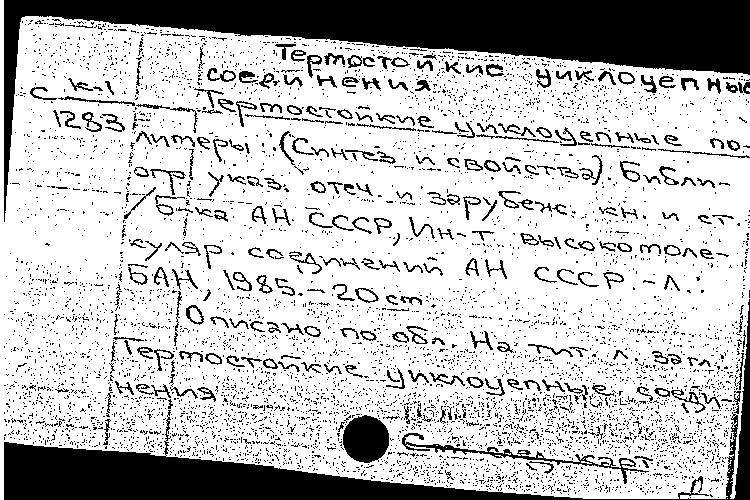 Термостойкие циклоцепные
соединения
с К-1
1283
Термостойкие циклоцепные по-
лимеры : (Синтез и свойства). Библи-
огр. указ. отеч. и зарубеж. кн. и ст.
/ Б-ка АН СССР, Ин-т высокомоле-
куляр. соединений АН СССР. - Л. :
БАН, 1985. - 20 см.
Описано по обл. На тит. л. загл.:
Термостойкие циклоцепные соеди-
нения.
См. след. карт.